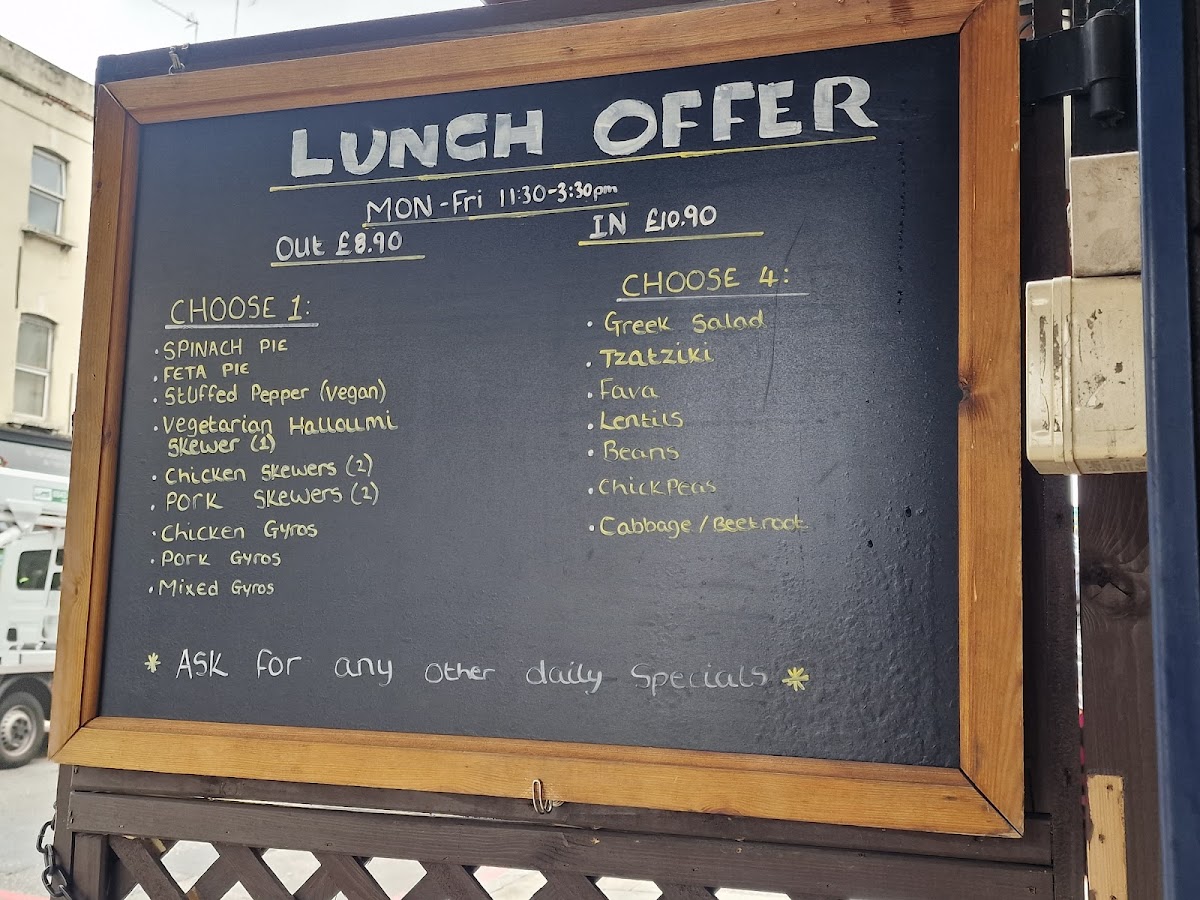 LUNCH OFFER
MON-Fri 11:30-3:30pm
Out £8.90
IN £10.90
CHOOSE 1:
• SPINACH PIE
• FETA PIE
• Stuffed Pepper (Vegan)
• Vegetarian Halloumi
Skewer (1)
• Chicken Skewers (2)
• Pork Skewers (2)
• Chicken Gyros
• Pork Gyros
• Mixed Gyros
CHOOSE 4:
• Greek Salad
• Tzatziki
• Fava
• Lentils
• Beans
• Chickpeas
• Cabbage / Beetroot
* ASK for any other daily Specials *